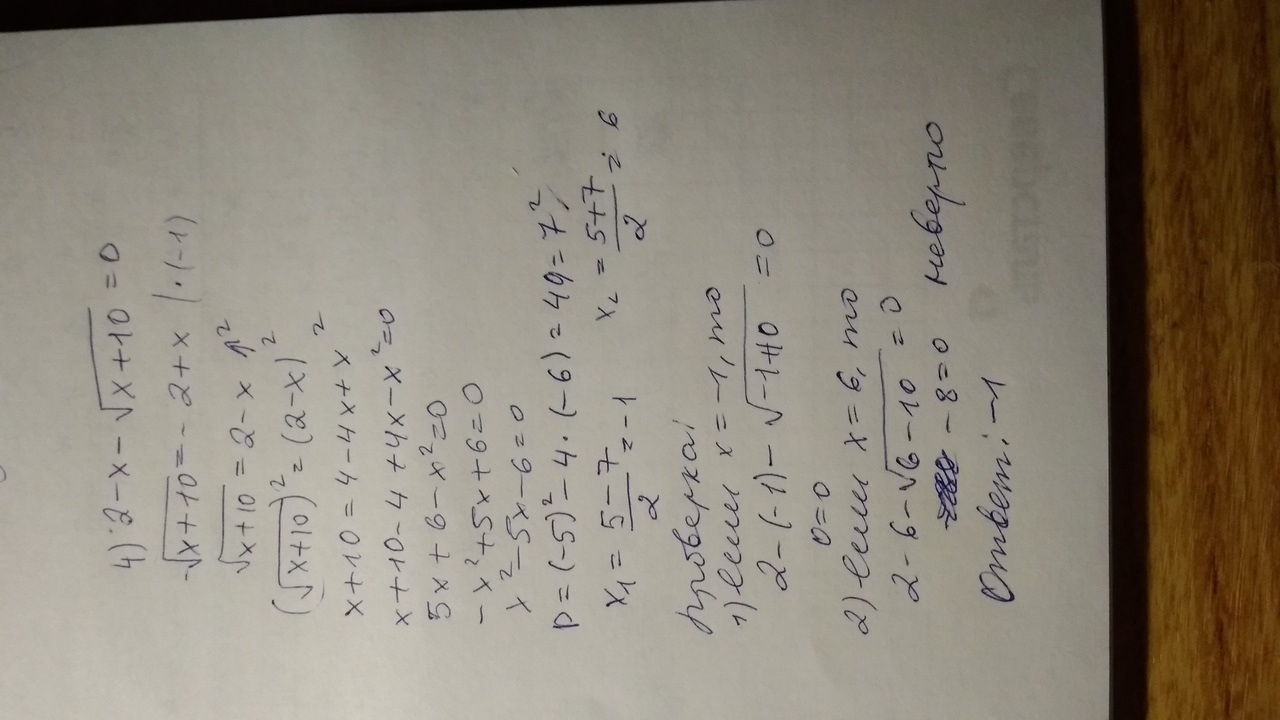 4) 2-x-√x+10 =0
-√x+10 = -2+x |·(-1)
√x+10 = 2-x ↑²
(√x+10)² = (2-x)²
x+10 = 4-4x+x²
x+10-4+4x-x²=0
5x+6-x²=0
-x²+5x+6=0
x²-5x-6=0
D=(-5)²-4·(-6)=49=7²,
x₁ = 5-7/2 = -1 x₂ = 5+7/2 = 6
Проверка:
1) если x=-1, то
2-(-1)-√-1+10 =0
0=0
2) если x=6, то
2-6-√6-10 =0
-8=0 неверно
Ответ: -1